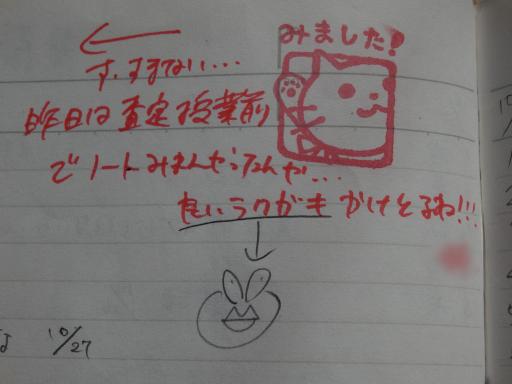 みました!
す、すまない...
昨日は査定授業前
でノートみれんやったんや...
良いラクガキ かけとるね!!!
10/27